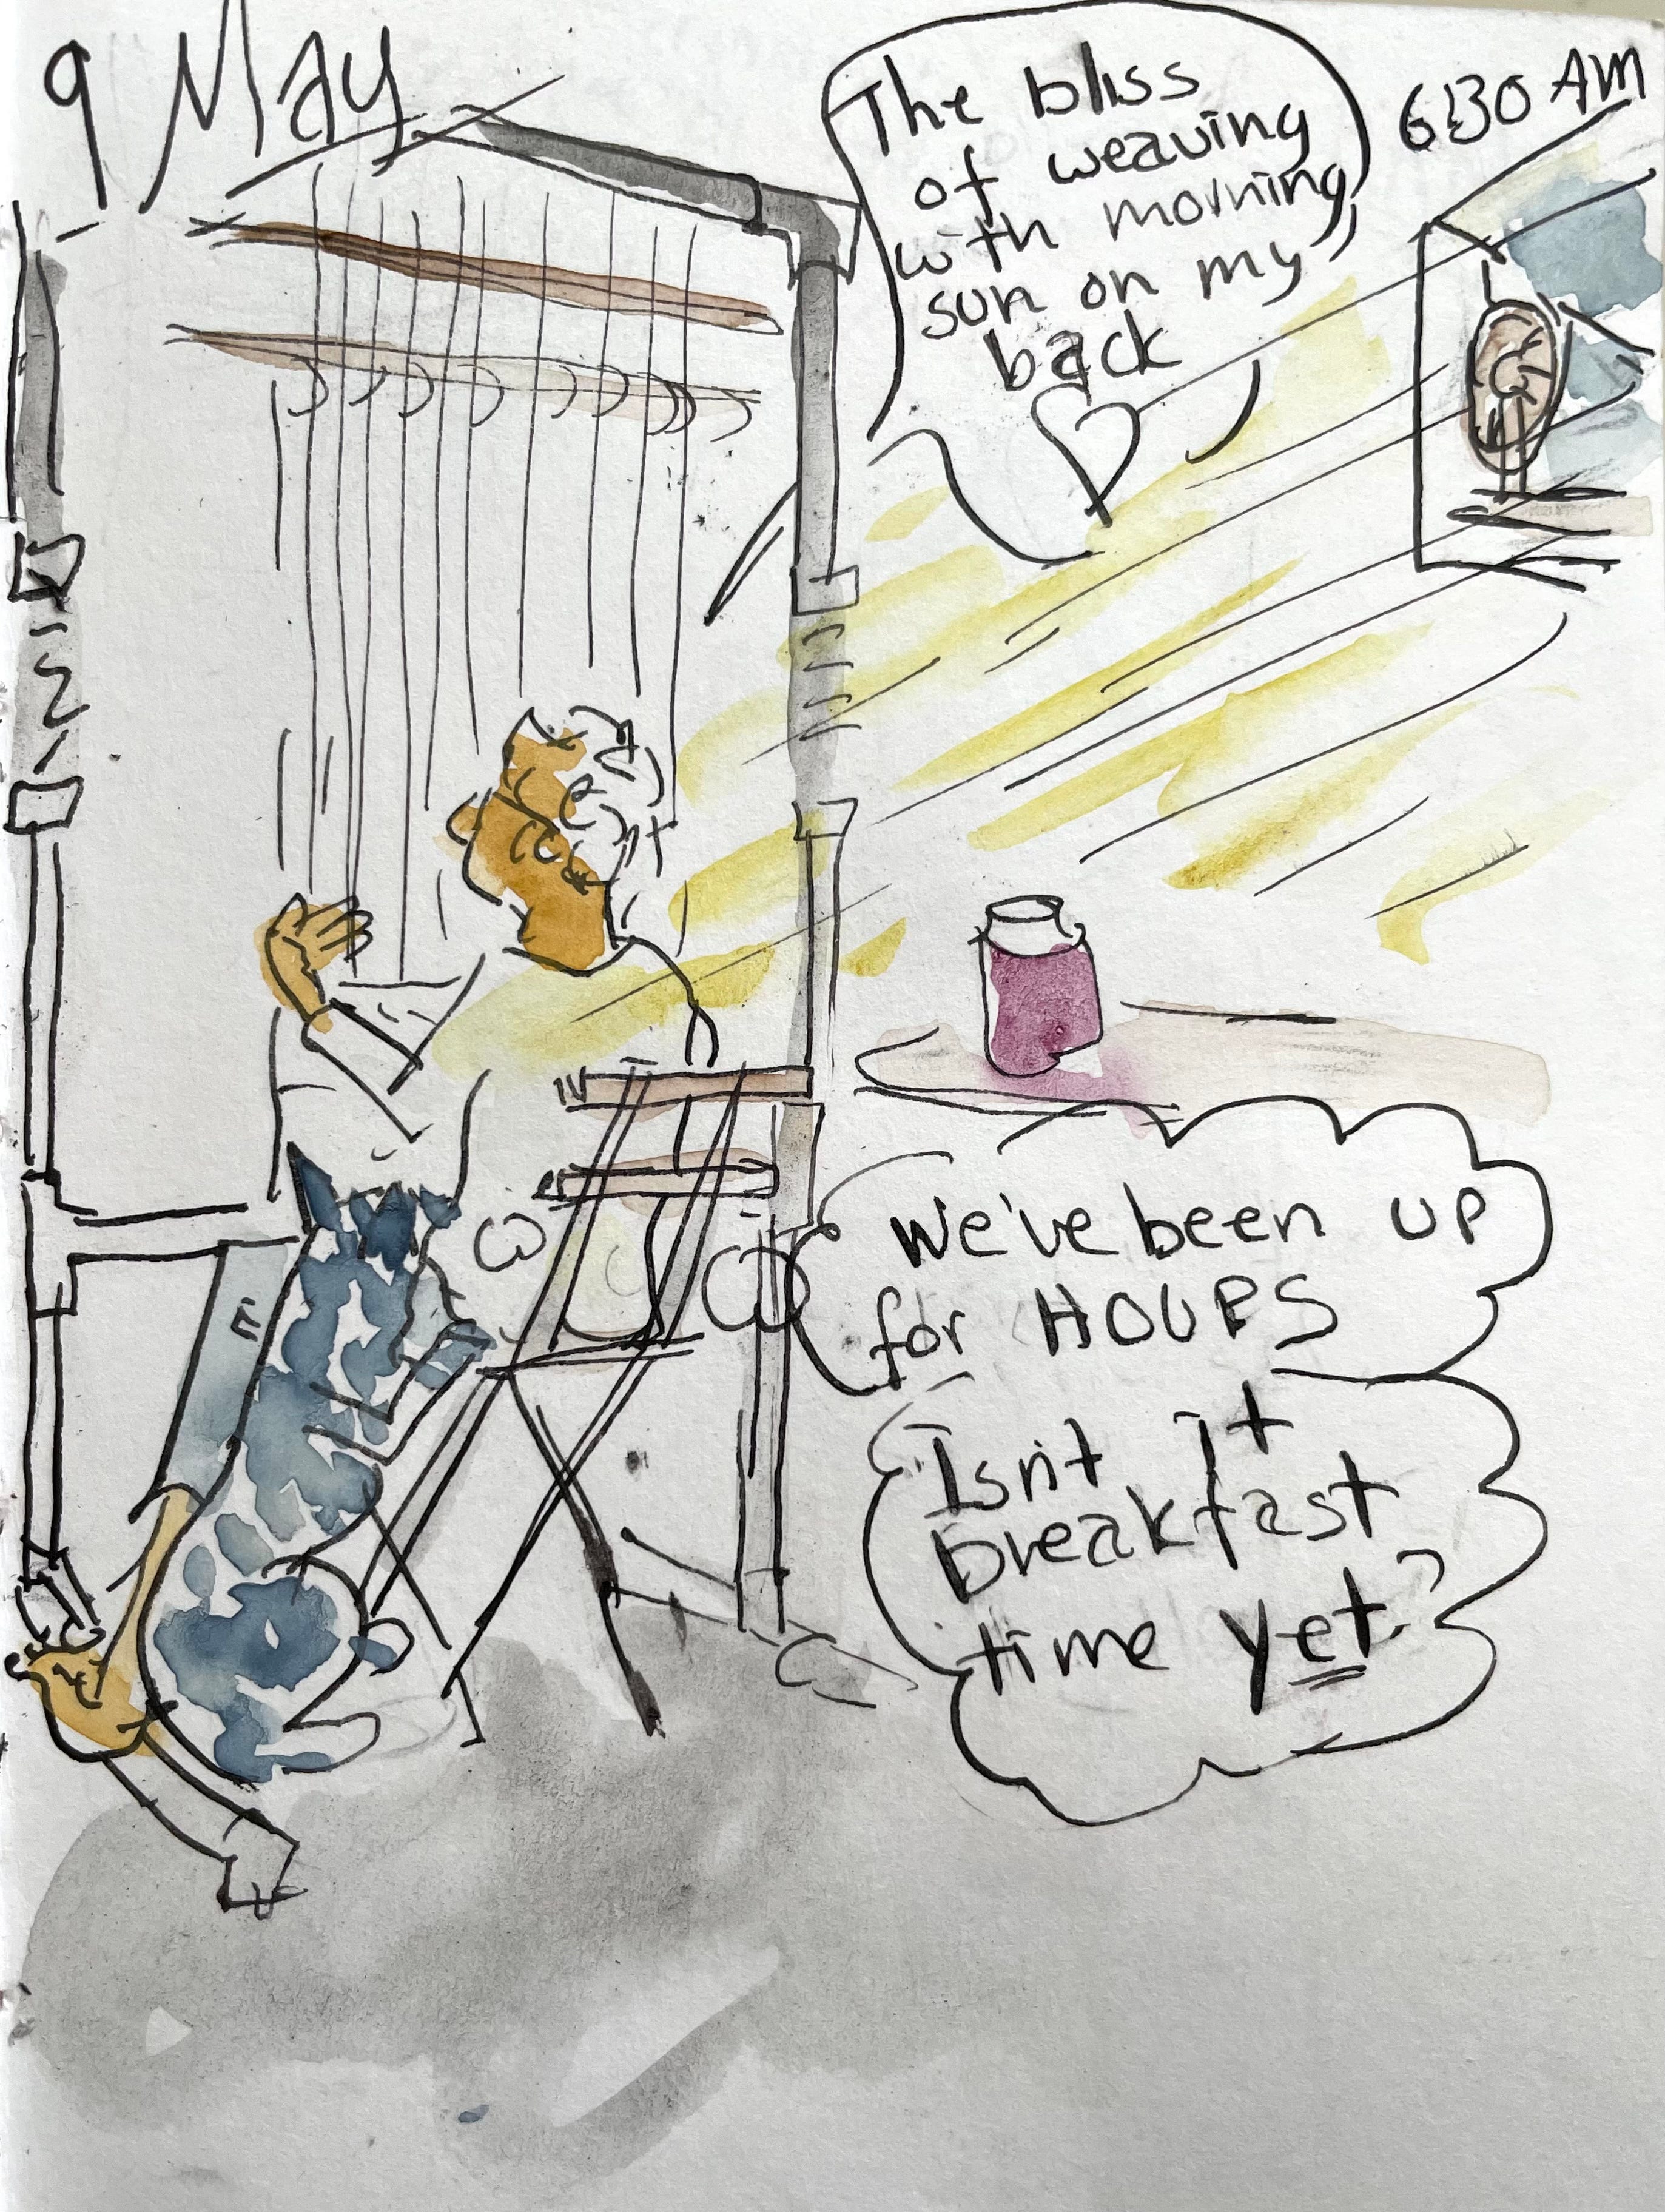 9 May
6:30 AM
The bliss
of weaving
with morning
sun on my
back
We've been up
for HOURS
Isn't It
breakfast
time yet?